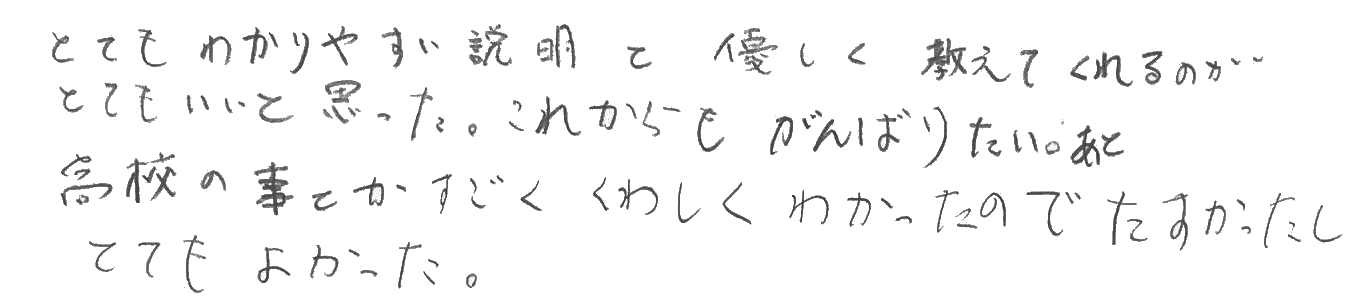 とてもわかりやすい説明と優しく教えてくれるのが
とてもいいと思った。これからもがんばりたい。あと
高校の事とかすごくくわしくわかったのでたすかったし
とてもよかった。